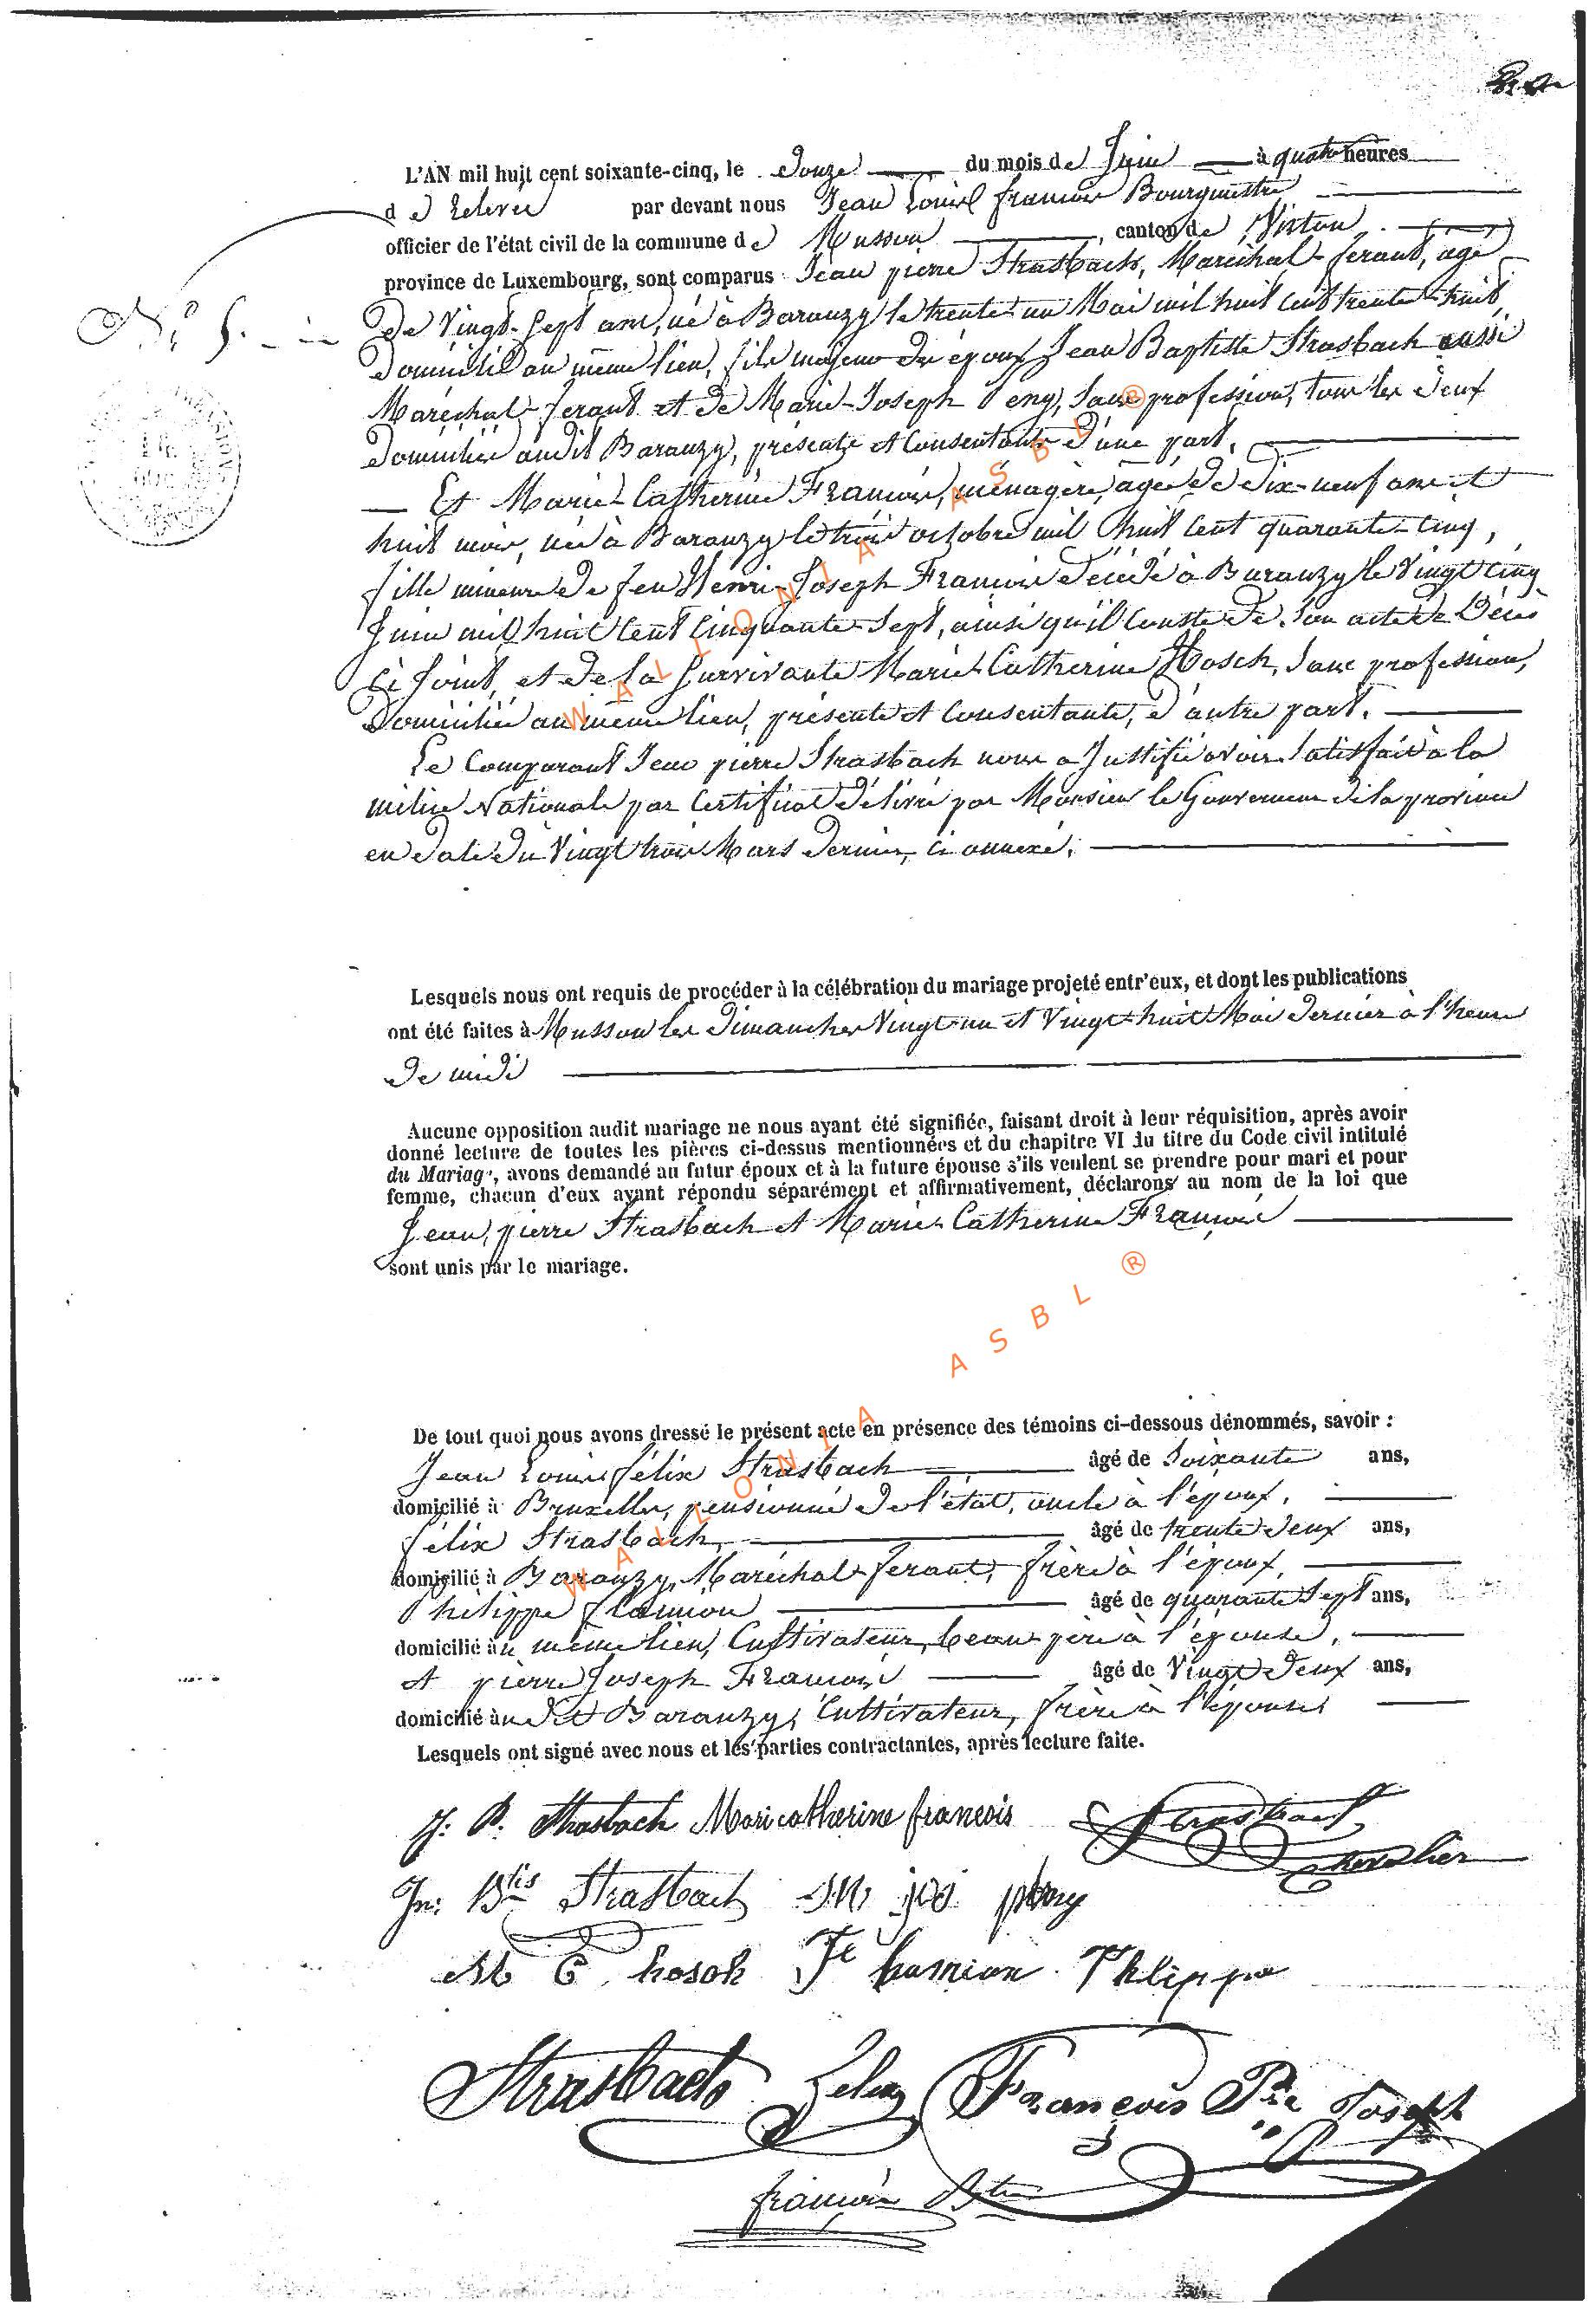 L'AN mil huit cent soixante-cinq, le douze du mois de Juin à quatre heures
de relevée par devant nous Jean Louis françois Bourgmestre
officier de l'état civil de la commune de Musson, canton de Virton
province de Luxembourg, sont comparus Jean pierre Strasbach, Maréchal-ferant, âgé
N° 5.
de Vingt-Sept ans, né à Baranzy le trente-un Mai mil huit cent trente-huit,
domicilié au même lieu, fils majeur des époux Jean Baptiste Strasbach aussi
Maréchal-ferant et de Marie-Joseph Peny, Sans profession, tous les deux
domiciliés audit Baranzy, présents et Consentants d'une part.
Et Marie-Catherine François, ménagère, âgée de dix-neuf ans et
huit mois, née à Baranzy le trois octobre mil huit cent quarante-cinq,
fille mineure de feu Henri-Joseph François décédé à Baranzy le Vingt cinq
Juin mil huit cent Cinquante-Sept, ainsi qu'il Conste de Son acte de Décès
Ci Joint, et de la Survivante Marie-Catherine Hosch, Sans profession,
domiciliée au même lieu, présente et Consentante, d'autre part.
Le Comparant Jean pierre Strasbach nous a Justifié avoir Satisfait à la
milice Nationale par Certificat délivré par Monsieur le Gouverneur de la province
en date du Vingt trois Mars dernier, ci annexé.
Lesquels nous ont requis de procéder à la célébration du mariage projeté entr'eux, et dont les publications
ont été faites à Musson les Dimanches Vingt-un et Vingt-huit Mai dernier à l'heure
de midi
Aucune opposition audit mariage ne nous ayant été signifiée, faisant droit à leur réquisition, après avoir
donné lecture de toutes les pièces ci-dessus mentionnées et du chapitre VI du titre du Code civil intitulé
du Mariag', avons demandé au futur époux et à la future épouse s'ils veulent se prendre pour mari et pour
femme, chacun d'eux ayant répondu séparément et affirmativement, déclarons au nom de la loi que
Jean, pierre Strasbach et Marie-Catherine François
sont unis par le mariage.
De tout quoi nous avons dressé le présent acte en présence des témoins ci-dessous dénommés, savoir :
Jean Louis félix Strasbach âgé de Soixante ans,
domicilié à Bruxelles, pensionné de l'état, oncle à l'époux.
félix Strasbach, âgé de trente deux ans,
domicilié à Baranzy, Maréchal-ferant, frère à l'époux,
Philippe flamion âgé de quarante Sept ans,
domicilié au même lieu, Cultivateur, beau-père à l'épouse,
et pierre Joseph François âgé de Vingt deux ans,
domicilié audit Baranzy, Cultivateur, frère à l'épouse
Lesquels ont signé avec nous et les parties contractantes, après lecture faite.
J: P. Strasbach Maricatherine francois Strasbach
Chevalier
Jn: Btis Strasbach
M C hosch Philippe
Strasbach Felix François Pre Joseph
françois Btre
WALLONIA ASBL ®
WALLONIA ASBL ®